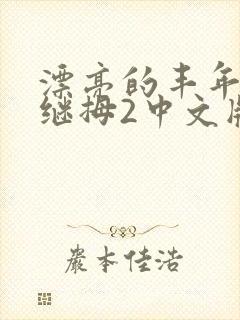 漂亮的丰年
继拇2中文版
嚴本佳浩